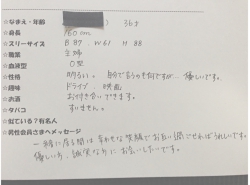 ☆なまえ・年齢 36才
☆身長 160cm
☆スリーサイズ B 87 W 61 H 88
☆職業 主婦
☆血液型 O型
☆性格 明るい。自分で言うのも何ですが、優しいです。
☆趣味 ドライブ、映画
☆お酒 お付き合いできます。
☆タバコ すいません。
☆似ている?有名人
☆男性会員さまへメッセージ
一緒に居る間は幸わせな笑顔でお互い過ごせればうれしいです。
優しい方、誠実な方にお会いしたいです。